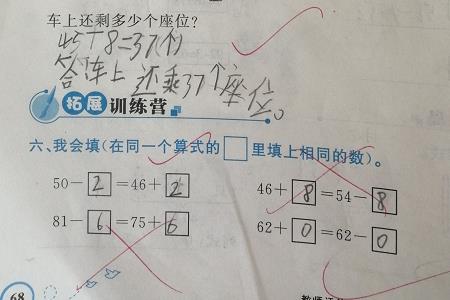 车上还剩多少个座位?
45+8=37(个)
答:车上还剩37个座位。
拓展训练营
六、我会填(在同一个算式的□里填上相同的数)。
50-2=46+2
46+8=54-8
81-6=75+6
62+0=62-0
68